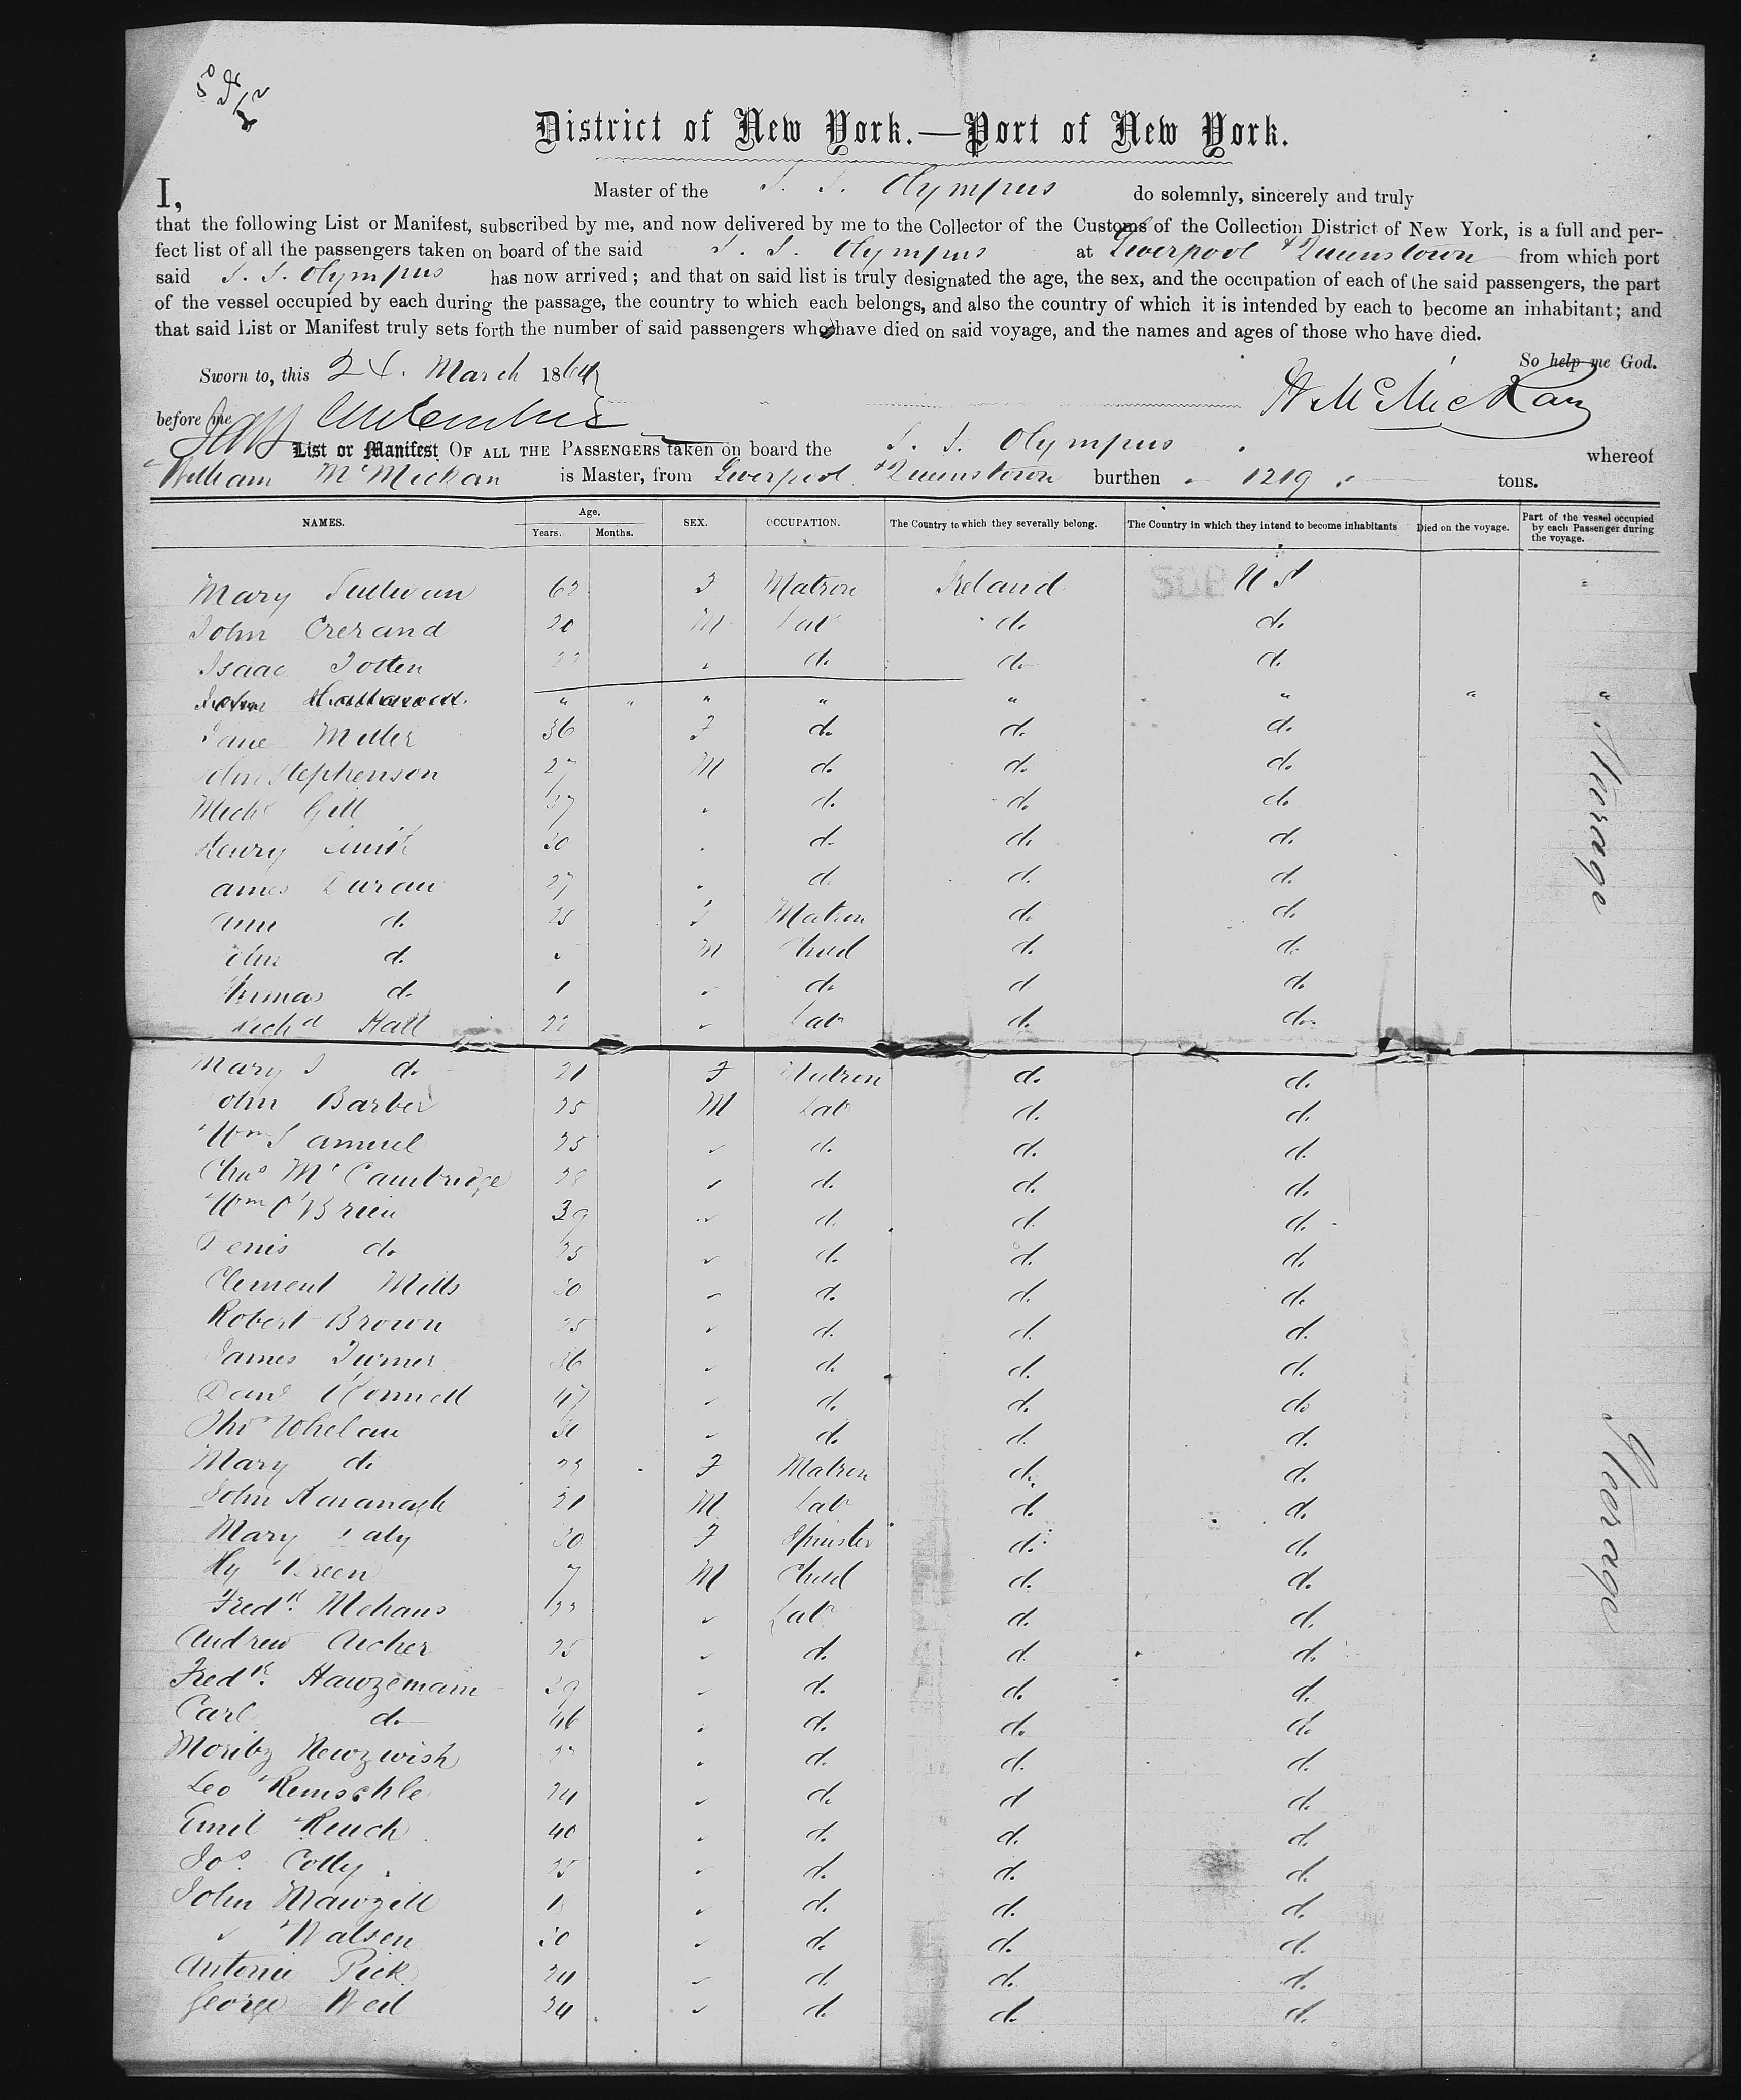 District of New York.—Port of New York.
I, Master of the S. S. Olympus do solemnly, sincerely and truly
that the following List or Manifest, subscribed by me, and now delivered by me to the Collector of the Customs of the Collection District of New York, is a full and per-
fect list of all the passengers taken on board of the said S. S. Olympus at Liverpool & Queenstown from which port
said S. S. Olympus has now arrived; and that on said list is truly designated the age, the sex, and the occupation of each of the said passengers, the part
of the vessel occupied by each during the passage, the country to which each belongs, and also the country of which it is intended by each to become an inhabitant; and
that said List or Manifest truly sets forth the number of said passengers who have died on said voyage, and the names and ages of those who have died.
So help me God.
Sworn to, this 24. March 1864
before me
List or Manifest OF ALL THE PASSENGERS taken on board the S. S. Olympus whereof
William McMickan is Master, from Liverpool & Queenstown burthen 1219 tons.
NAMES. Age. Years. Months. SEX. OCCUPATION. The Country to which they severally belong. The Country in which they intend to become inhabitants Died on the voyage. Part of the vessel occupied by each Passenger during the voyage.
Mary Sullivan 62 F Matron Ireland U S
John Crerand 20 M Lab do do
Isaac Totten do do do
John " " " " " " " "
Jane Miller 36 F do do do
John Stephenson 27 M do do do
Michl Gill 37 do do do
Henry Smith 30 do do do
James Duran 27 do do do
Ann do 25 F Matron do do
John do M Child do do
Thomas do 1 do do do
Richd Hall Lab do do
Mary J do 21 F Matron do do
John Barber 25 M Lab do do
Wm Samuel 25 do do do
Chas McCambridge 28 do do do
Wm O'Brien 39 do do do
Denis do 25 do do do
Clement Mills 30 do do do
Robert Brown 25 do do do
James Turner 36 do do do
Danl O'Connell 47 do do do
Thos Whelan 30 do do do
Mary do 23 F Matron do do
John Kavanagh 21 M Lab do do
Mary Daly 30 F Spinster do do
Hy Green 7 M Child do do
Fredk. Mehans 33 Lab do do
Andrew Archer 25 do do do
Fredk. Hawzemann 39 do do do
Carl do 46 do do do
Moritz Newzwish do do do
Leo Remschle 24 do do do
Emil Reuch 40 do do do
Jos. Colly 25 do do do
John Mawzill do do do
" Walsen 30 do do do
Antonie Pick 24 do do do
George Weil 34 do do do
Steerage
Steerage